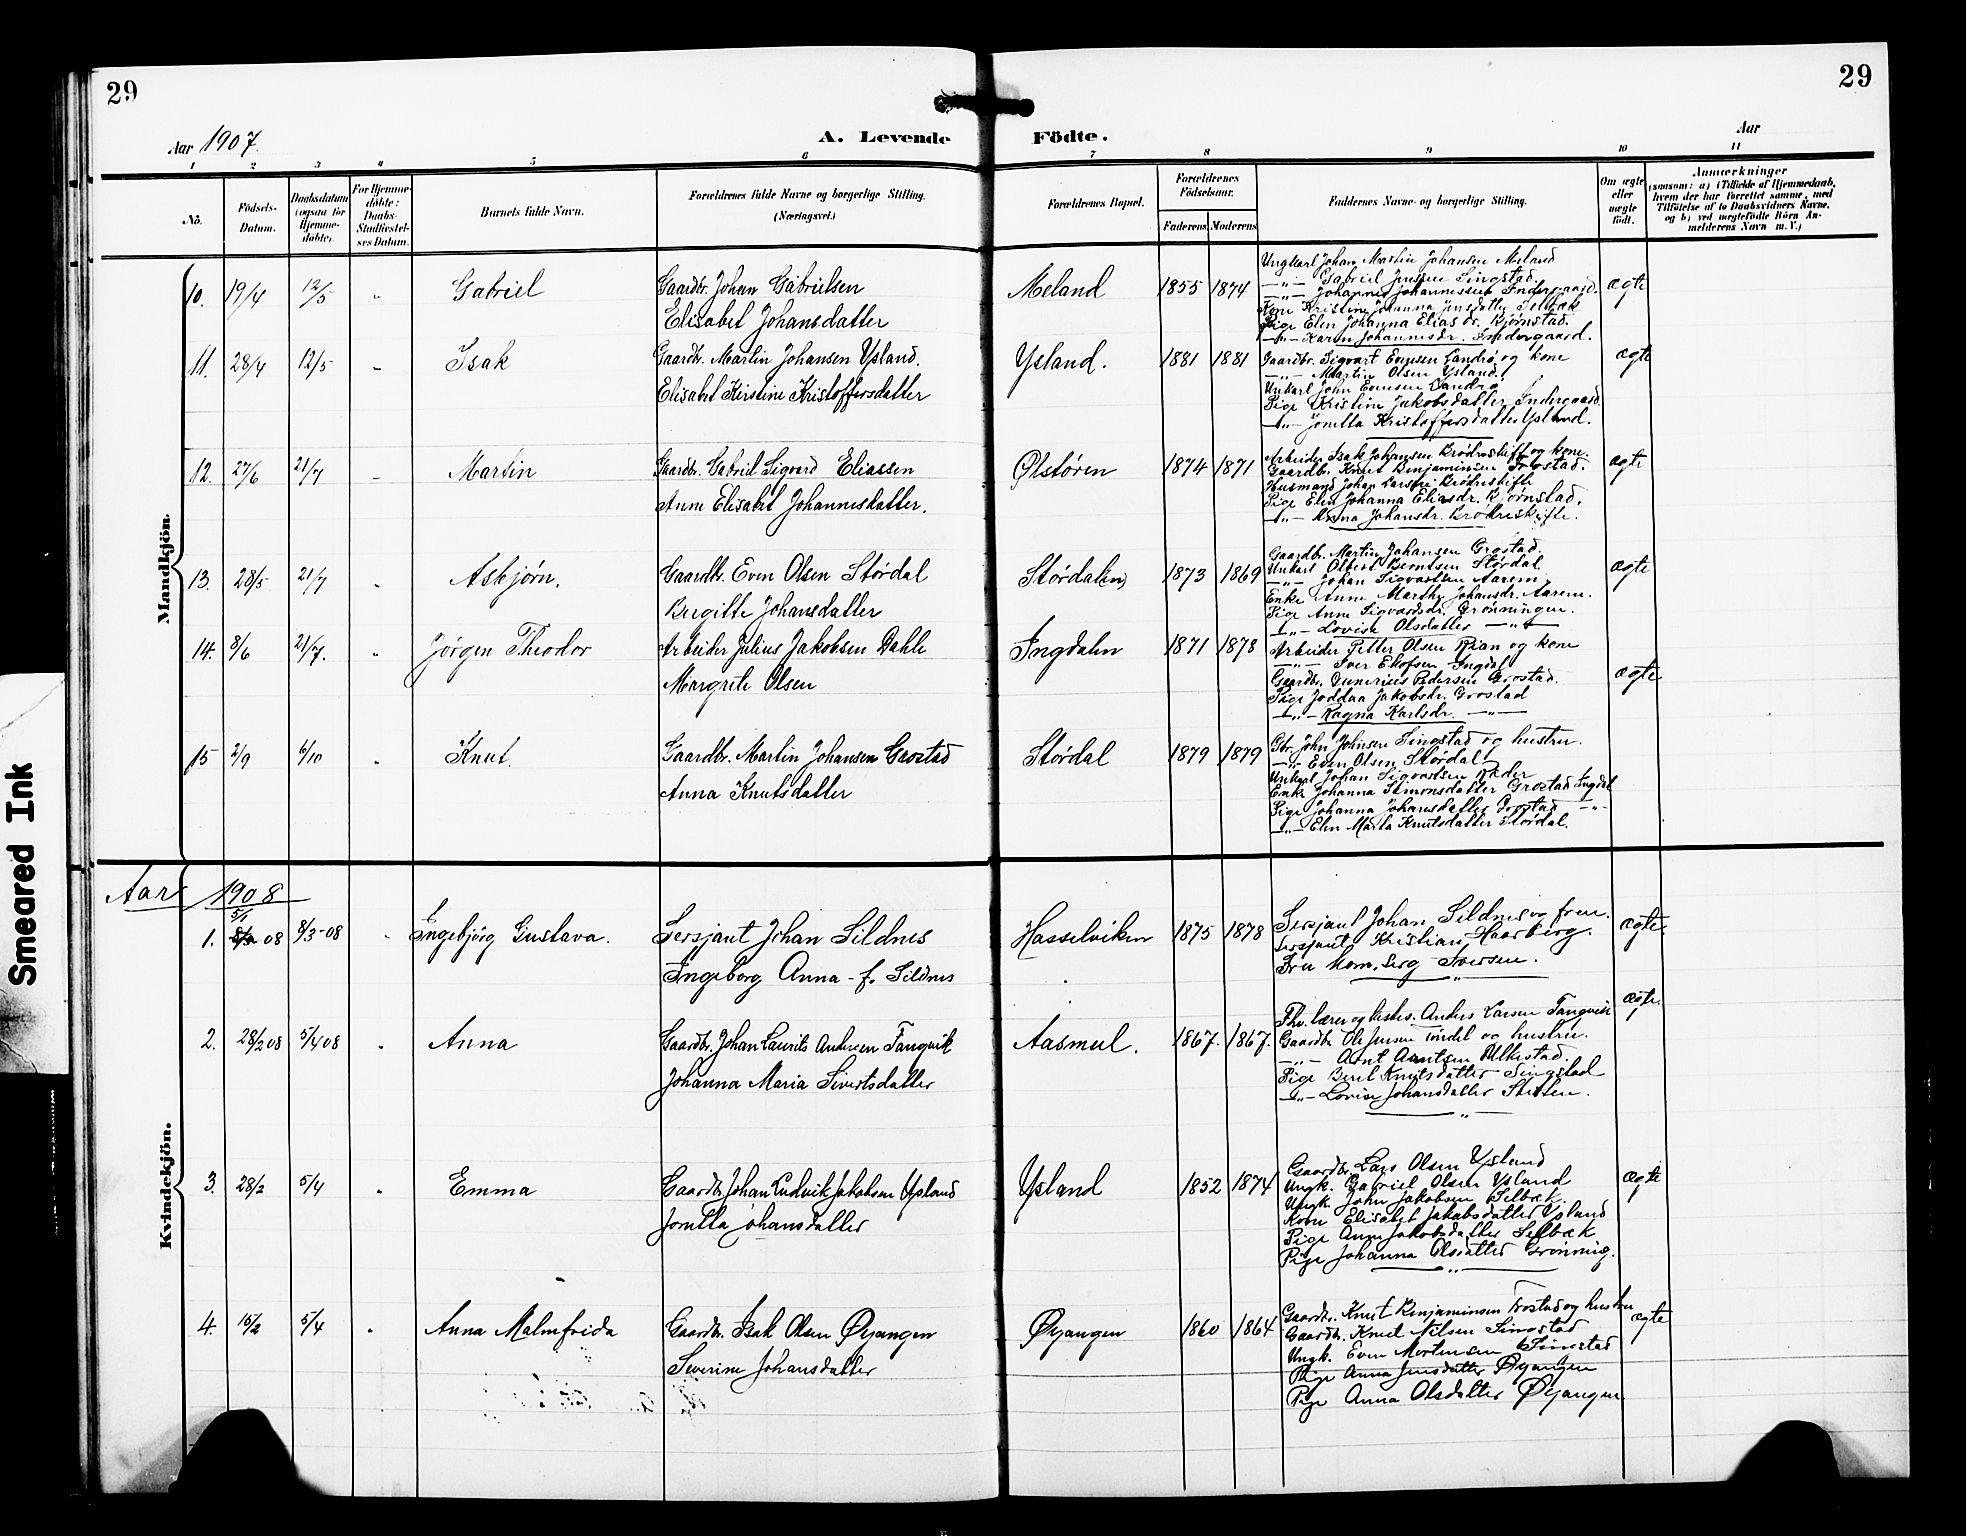 29
29
Aar 1907.
A. Levende Födte.
Aar
1 2 3 4 5 6 7 8 9 10 11
No.
Födsels-Datum.
Daabsdatum (ogsaa for Hjemmedöbte).
For Hjemmedöbte: Daabs-Stadfæstelses Datum.
Barnets fulde Navn.
Forældrenes fulde Navne og borgerlige Stilling. (Næringsvei.)
Forældrenes Bopæl.
Forældrenes Födselsaar.
Faderens Moderens
Faddernes Navne og borgerlige Stilling.
Om ægte eller uægte födt.
Anmærkninger
(saasom: a) i Tilfælde af Hjemmedaab, hvem der har forrettet samme, med Tilföielse af to Daabsvidners Navne, og b) ved uægtefödte Börn Anmelderens Navn m. V.)
Mandkjön.
10. 19/4 12/5 " Gabriel
Gaardbr. Johan Gabrielsen
Elisabet Johansdatter
Meland 1855 1874
Ungkarl Johan Martin Johansen Meland
—"— Gabriel Jensen Singstad
—"— Johannes Johannessen Indergaard.
Kone Kristine Johanna Jensdatter Selbæk
Pige Elen Johanna Eliasdr. Bjørnstad.
—"— Karen Johannesdr. Indergaard.
ægte
11. 28/4 12/5 " Isak
Gaardbr. Martin Johansen Ysland.
Elisabet Kirstine Kristoffersdatter
Ysland. 1881 1881
Gaardbr. Sigvart Evensen Landrø og kone
—"— Martin Olsen Ysland.
Unkarl John Evensen Landrø
Pige Kristine Jakobsdatter Indergaard.
—"— Jonetta Kristoffersdatter Ysland.
ægte
12. 27/6 21/7 " Martin
Gaardbr. Gabriel Sigvard Eliassen
Anne Elisabet Johannesdatter.
Ølstøren 1874 1871
Arbeider Isak Johansen Brødreskift og kone.
Gaardbr. Knut Benjaminsen Trostad.
Husmand Johan Larsen Brødreskifte
Pige Elen Johanna Eliasdr. Bjørnstad.
—"— Anna Johansdr. Brødreskifte.
ægte
13. 28/5 21/7 " Asbjørn.
Gaardbr. Even Olsen Størdal
Bergitte Johansdatter
Størdalen 1873 1869
Gaardbr. Martin Johansen Grostad.
Unkarl Olbert Berntsen Størdal
—"— Johan Sigvartsen Aarem.
Enke Anne Marthe Johansdr. Aarem.
Pige Anne Sigvardsdr. Grønningen.
—"— Lovise Olsdatter —"—
ægte
14. 8/6 21/7. " Jörgen Theodor
Arbeider Julius Jakobsen Dahle
Margrete Olsen
Ingdalen 1871 1878
Arbeider Petter Olsen Rian og kone
—"— Iver Elofsen Ingdal
Gaardbr. Gunerius Pedersen Grostad.
Pige Joddaa Jakobsdr. Grostad
—"— Ragna Karlsdr. —"—
ægte
15 2/9 6/10 " Knut.
Gaardbr. Martin Johansen Grostad
Anna Knutsdatter
Størdal 1879 1879
Gbr. John Johnsen Singstad og hustru.
—"— Even Olsen Størdal
Unkarl Johan Sigvartsen
Enke Johanna Simonsdatter Grostad Ingdal
Pige Johanna Johansdatter Grostad —"—
—"— Elen Marta Knutsdatter Størdal.
Aar 1908
Kvindekjön.
1. 5/1 08 8/3-08 " Ingebjörg Gustava.
Sersjant Johan Sildnes
Ingeborg Anna f. Sildnes
Hasselviken 1875 1878
Sersjant Johan Sildnes og frue.
Sersjant Kristian Haarberg.
Fru kom. serg Iversen.
ægte
2. 28/2 08 5/4 08 " Anna
Gaardbr. Johan Laurits Andersen Tangvik
Johanna Maria Sivertsdatter
Aasmul. 1867. 1867.
Fhv. lærer og kirkes. Anders Larsen Tangvik
Gaardbr Ole Jensen Tindel og hustru.
—"— Arnt Arntsen Alkestad.
Pige Beret Knutsdatter Singstad
—"— Lovise Johansdatter Stensen.
ægte.
3. 28/2 5/4 " Emma
Gaardbr. Johan Ludvik Jakobsen Ysland
Jonetta Johansdatter
Ysland 1852 1874
Gaardbr. Lars Olsen Ysland
Ungk. Gabriel Olsen Ysland
Ungk. John Jakobsen Selbæk
Kone Elisabet Jakobsdatter Ysland
Pige Anna Jakobsdatter Selbæk
Pige Johanna Olsdatter Grönning.
ægte
4. 15/2 5/4 " Anna Malmfrida
Gaardbr. Isak Olsen Øyangen
Severine Johansdatter
Øyangen 1860 1864
Gaardbr. Knut Benjaminsen Trostad og hustru
Gaardbr. Knut Nilsen Singstad
Ungk. Even Mortensen Singstad
Pige Anna Jensdatter Øyangen
Pige Anna Olsdatter Øyangen
ægte
Smeared Ink